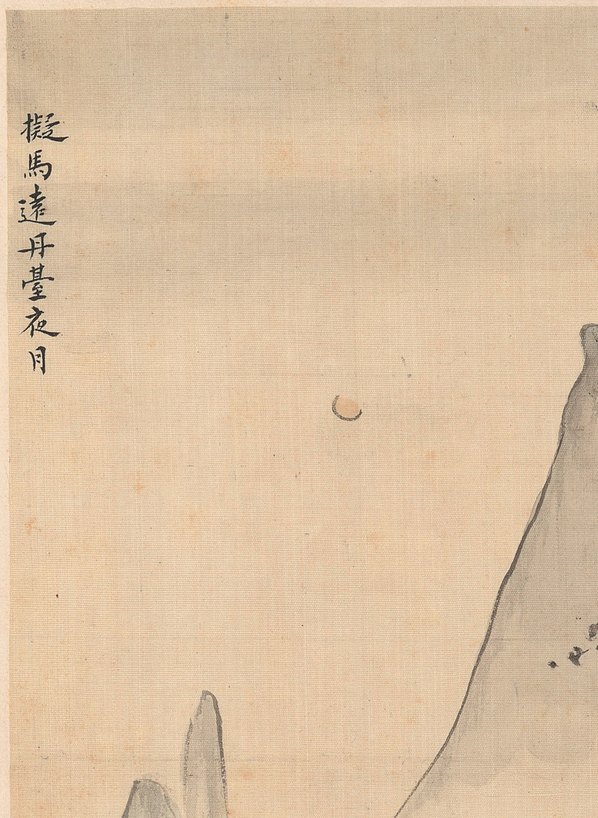 擬馬遠丹臺夜月